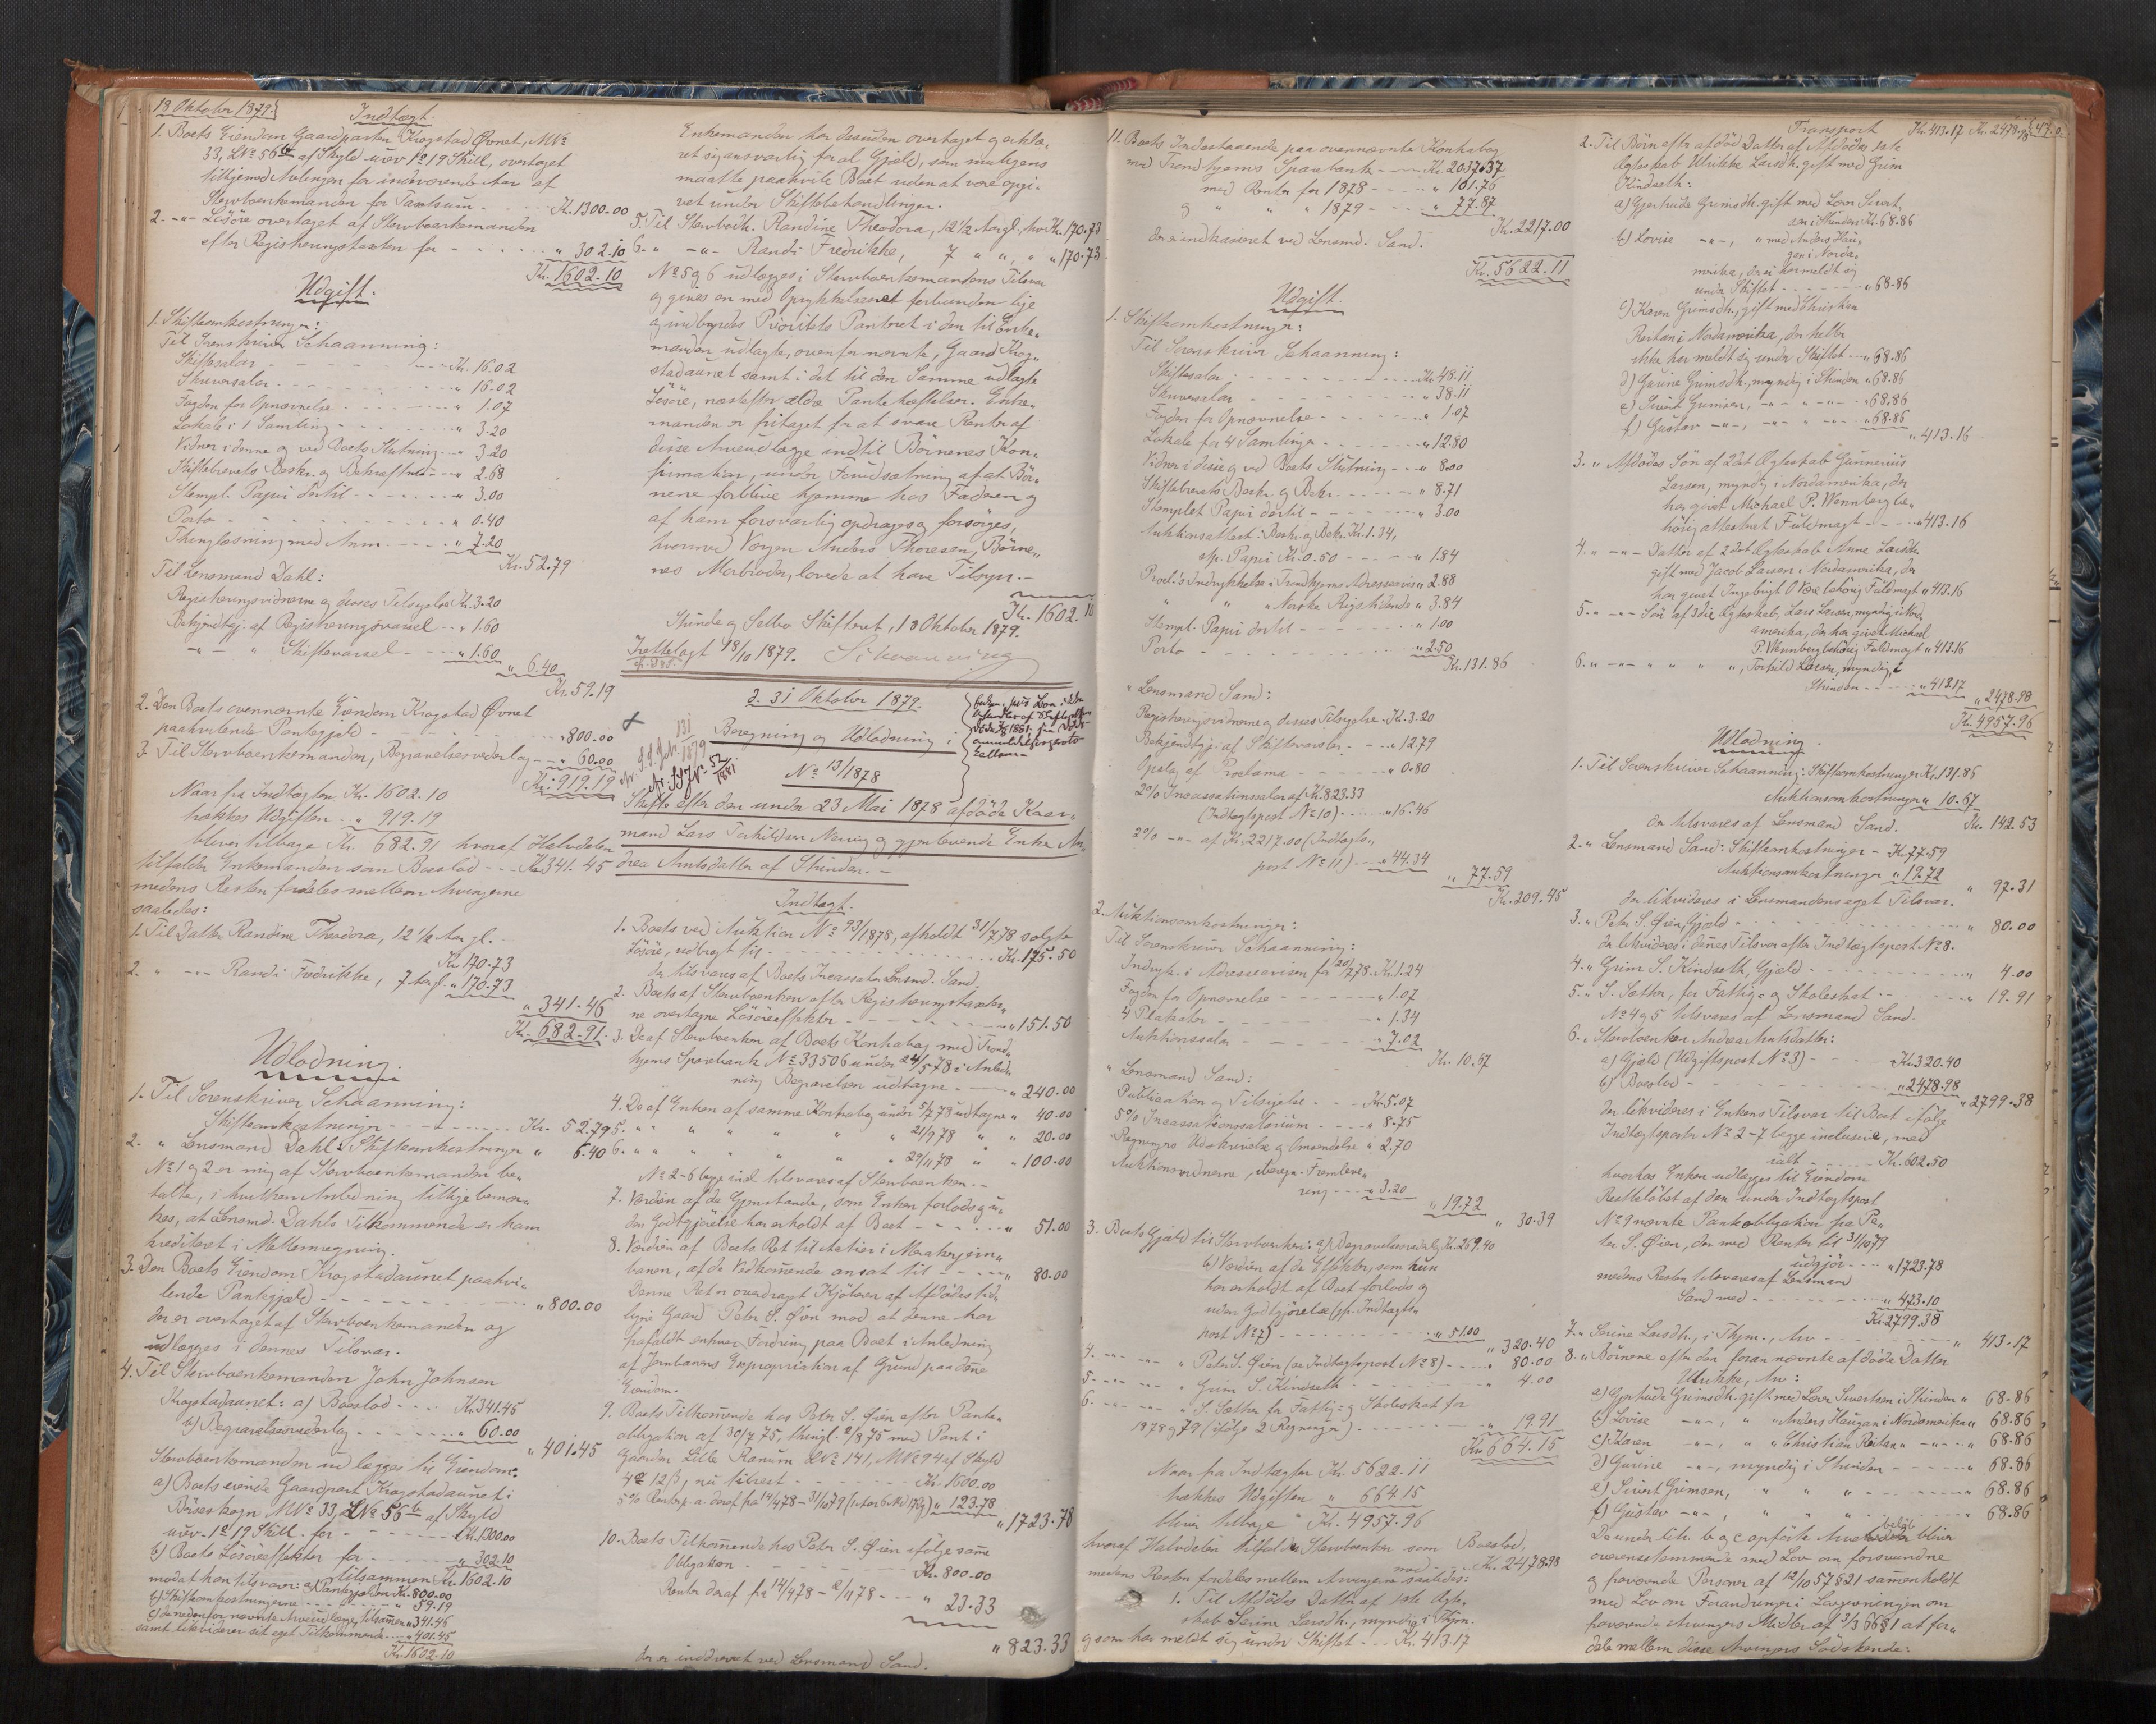 18 Oktober 1879.
Indtægt.
1. Boets Eiendom Gaardparten Krogstad Øvnet, M.No
33, LNo 56b af Skyld urev. 1o 19 Skill, overtaget
tilligemed Avlingen for indeværende Aar af
Stervboenkemanden for Taxtsum - - - Kr. 1300.00
2. -"- Løsøre overtaget af Stervboenkemanden
efter Registreringstaxten for - - - " 302.10
Kr. 1602.10
Udgift.
1. Skifteomkostninger:
Til Sorenskriver Schaanning:
Skiftesalær - - - Kr. 16.02
Skriversalær - - - " 16.02
Fogden for Opnævnelse - - - " 1.07
Lokale i 1 Samling - - - " 3.20
Vidner i denne og ved Boets Slutning - - " 3.20
Skiftebrevets Beskr. og Bekræftelse - - " 2.68
Stempl. Papir dertil - - - " 3.00
Porto - - - " 0.40
Thinglæsning med Anm. - - - " 7.20
Kr. 52.79
Til Lensmand Dahl:
Registreringsvidnerne og disses Tilsigelse Kr. 3.20
Bekjendtgj. af Registreringsvarsel - - " 1.60
-"- " Skiftevarsel - - - " 1.60
" 6.40
Kr. 59.19
2. Den Boets ovennævnte Eiendom Krogstad Øvnet
paahvilende Pantegjæld - - - " 800.00
3. Til Stervboenkemanden, Begravelsesvederlag - - " 60.00
Kr. 919.19
Naar fra Indtægten, Kr. 1602.10
trækkes Udgiften - - " 919.19
bliver tilbage Kr. 682.91 hvoraf Halvdelen
tilfalder Enkemanden som Boeslod - - - Kr. 341.45
medens Resten fordeles mellem Arvingerne
saaledes:
1. Til Datter Randine Theodora, 12 1/2 Aar gl. -
Kr. 170.73
2. " -"- Randi Fredrikke, 7 Aar gl. " 170.73
" 341.46
Kr. 682.91
Udlodning.
1. Til Sorenskriver Schaanning:
Skifteomkostninger - - - Kr. 52.79
2. " Lensmand Dahl: Skifteomkostninger " 6.40
No 1 og 2 er mig af Stervboenkemanden be-
talte, i hvilken Anledning tillige bemær-
kes, at Lensmd. Dahls Tilkommende er ham
krediteret i Mellemregning.
3. Den Boets Eiendom Krogstadaunet paahvi-
lende Pantegjæld - - - " 800.00
der er overtaget af Stervboenkemanden og
udlægges i dennes Tilsvar.
4. Til Stervboenkemanden John Johnsen
Krogstadaunet: a) Boeslod - - - Kr. 341.45
b) Begravelsesvederlag - - - " 60.00
" 401.45
Stervboenkemanden udlægges til Eiendom:
a) Boets eiende Gaardpart Krogstadaunet i
Børseskogn MNo 33, LNo 56b af Skyld
urev. 1o 19 Skill. for - - - Kr. 1300.00
b) Boets Løsøreeffekter for - - - " 302.10
tilsammen Kr. 1602.10
modat han tilsvarer: a) Pantegjælden Kr. 800.00
b) Skifteomkostningerne - - - " 59.19
c) de nedenfor nævnte Arveudlægge, tilsammen " 341.46
samt likviderer sit eget Tilkommende - - " 401.45
Kr. 1602.10
Enkemanden har desuden overtaget og erklæ-
ret sig ansvarlig for al Gjæld, som muligens
maatte paahvile Boet uden at være opgi-
vet under Skiftebehandlingen.
5. Til Stervbodtr. Randine Theodora, 12 1/2 Aar gl., Arv Kr. 170.73
6. " -"- Randi Fredrikke, 7 " " , " " 170.73
No 5 og 6 udlægges i Stervboenkemandens Tilsvar
og gives en med Oprykkelsesret forbunden lige
og indbyrdes Prioritets Panteret i den til Enke-
manden udlagte, ovenfor nævnte, Gaard Krog-
stadaunet samt i det til den Samme udlagte
Løsøre, næstefter ældre Pantehæftelser. Enke-
manden er fritaget for at svare Renter af
disse Arveudlægge indtil Børnenes Kon-
firmation, under Forudsætning af at Bør-
nene forblive hjemme hos Faderen og
af ham forsvarlig opdrages og forsørges,
hvormed Værgen Anders Thoresen, Børne-
nes Morbroder, lovede at have Tilsyn. -
Kr. 1602.10
Strinde og Selbo Skifteret, 18 Oktober 1879.
Schaanning
Fremlagt 18/10 1879.
d. 31 Oktober 1879.
Beregning og Udlodning i
No 13/1878
Skifte efter den under 23 Mai 1878 afdøde Kaar-
mand Lars Torkildsen Nervig og gjenlevende Enke An-
drea Arntsdatter af Strinden. -
Indtægt.
1. Boets ved Auktion No 93/1878, afholdt 31/7 78 solgte
Løsøre, udbragt til - - - Kr. 175.50
der tilsvares af Boets Incassator Lensmd. Sand.
2. Boets af Stervboenken efter Registreringstaxter-
ne overtagne Løsøreeffekter - - - " 151.50
3. De af Stervboenken af Boets Kontrabog med Trond-
hjems Sparebank No 33506 under 24/5 78 i Anled-
ning Begravelsen udtagne - - - " 240.00
4. De af Enken af samme Kontrabog under 5/7 78 udtagne " 40.00
5. " " " " " " 21/9 78 " " 20.00
6. " " " " " " 29/11 78 " " 100.00
No 2-6 begge incl. tilsvares af Stervboenken. -
7. Værdien af de Gjenstande, som Enken forlods og u-
den Godtgjørelse har erholdt af Boet - - - " 51.00
8. Værdien af Boets Ret til Aktier i Merakerjern-
banen, af de Vedkommende ansat til - - - " 80.00
Denne Ret er overdraget Kjøberen af Afdødes tid-
ligere Gaard Peter S. Øien mod at denne har
frafaldt enhver Fordring paa Boet i Anledning
af Jernbanens Expropriation af Grund paa denne
Eiendom.
9. Boets Tilkommende hos Peter S. Øien efter Pante-
obligation af 30/7 75, thingl. 2/8 75 med Pant i
Gaarden Lille Ranum LNo 141, MNo 94 af Skyld
4o 12 β, nu tilrest - - - Kr. 1600.00
5% Renter p. a. deraf fra 14/4 78 - 31/10 79 " 123.78
" 1723.78
10. Boets Tilkommende hos Peter S. Øien ifølge samme
Obligation - - - Kr. 800.00
Renter deraf fra 14/4 78 - 2/11 78 - - - " 23.33
" 823.33
der er inddrevet ved Lensmand Sand.
11. Boets Indestaaende paa ovennævnte Kontrabog
med Trondhjems Sparebank - - - Kr. 2037.37
med Renter for 1878 - - - " 101.76
og " " " 1879 - - - " 77.87
Kr. 2217.00
der er indkasseret ved Lensmd. Sand.
Kr. 5622.11
Udgift.
1. Skifteomkostninger:
Til Sorenskriver Schaanning:
Skiftesalær - - - Kr. 48.11
Skriversalær - - - " 38.11
Fogden for Opnævnelse - - - " 1.07
Lokale for 4 Samlinger - - - " 12.80
Vidner i disse og ved Boets Slutning - - " 8.00
Skiftebrevets Beskr. og Bekr. - - - " 8.71
Stemplet Papir dertil - - - " 3.00
Auktionsattest: Beskr. og Bekr. Kr. 1.34,
st. Papir Kr. 0.50 - - - " 1.84
Procl.s Indrykkelse i Trondhjems Adresseavis " 2.88
" " " Norske Rigstidende " 3.84
Stempl. Papir dertil - - - " 1.00
Porto - - - " 2.50
Kr. 131.86
" Lensmand Sand:
Registreringsvidnerne og disses Tilsigelse - Kr. 3.20
Bekjendtgj. af Skiftevarsler - - - " 12.79
Opslag af Proclama - - - " 0.80
2% Incassationssalær af Kr. 823.33
(Indtægtspost No 10) - - - " 16.46
2% -"- af Kr. 2217.00 (Indtægts-
post No 11) - - - " 44.34
" 77.59
Kr. 209.45
2. Auktionsomkostninger:
Til Sorenskriver Schaanning:
Indryk. i Adresseavisen for 20/7 78. Kr. 1.24
Fogden for Opnævnelse - - - " 1.07
4 Plakater - - - " 1.34
Auktionssalær - - - " 7.02
Kr. 10.67
" Lensmand Sand:
Publication og Tilsigelse - - - Kr. 5.07
5% Incassationssalarium - - - " 8.75
Regningers Udskrivelse og Omsendelse " 2.70
Auktionsvidnerne, Beregn. Fremleve-
ring - - - " 3.20
" 19.72
" 30.39
3. Boets Gjæld til Stervboenken: a) Begravelsesvederlag Kr. 269.40
b) Værdien af de Effekter, som hun
har erholdt af Boet forlods og
uden Godtgjørelse (jfr. Indtægts-
post No 7) - - - " 51.00
" 320.40
4. -"- -"- " Peter S. Øien (se Indtægtspost No 8) - - " 80.00
5. -"- -"- " Grim S. Kindseth - - - " 4.00
6. -"- -"- " S. Sæther for Fattig- og Skoleskat for
1878 og 79 (ifølge 2 Regninger) - - - " 19.91
Kr. 664.15
Naar fra Indtægten Kr. 5622.11
trækkes Udgiften " 664.15
bliver tilbage " Kr. 4957.96
hvoraf Halvdelen tilfalder Stervboenken som Boeslod,
med - - - Kr. 2478.98
medens Resten fordeles mellem Arvingerne saaledes:
1. Til Afdødes Datter af 1ste Ægte-
skab Serine Larsdtr., myndig, i Thjem.
og som har meldt sig under Skiftet - - - Kr. 413.17
Transport Kr. 413.17 Kr. 2478.98
2. Til Børn efter afdød Datter af Afdødes 1ste
Ægteskab Ulrikke Larsdtr. gift med Grim
Kindseth:
a) Gjertrude Grimsdtr. gift med Lorn Sivert-
sen i Strinden Kr. 68.86
b) Lovise -"-, " med Anders Hau-
gan i Norda-
merika, der ei har meldt sig
under Skiftet - - - " 68.86
c) Karen Grimsdtr., gift med Christian
Reitan i Nordamerika, der heller
ikke har meldt sig under Skiftet - - " 68.86
d) Gurine Grimsdtr., myndig i Strinden " 68.86
e) Sivert Grimsen, -"- " -"- - " 68.86
f) Gustav -"-, -"- " -"- - " 68.86
" 413.16
3. " Afdødes Søn af 2det Ægteskab Gunnerius
Larsen, myndig i Nordamerika, der
har givet Michael P. Wennberg be-
hørig attesteret Fuldmagt - - - " 413.16
4. " -"- Datter af 2det Ægteskab Anne Larsdtr.
gift med Jacob Larsen i Nordamerika, der
har givet Ingebrigt O. Være behørig Fuldmagt " 413.16
5. " -"- Søn af 3die Ægteskab, Lars Larsen, myndig i Nord-
amerika, der har givet Michael
P. Wennberg behørig Fuldmagt " 413.16
6. " -"- " " " ", Torkild Larsen, myndig i
Strinden - - - " 413.17
" 2478.98
Kr. 4957.96
Udlodning.
1. Til Sorenskriver Schaanning: Skifteomkostninger Kr. 131.86
Auktionsomkostninger " 10.67
der tilsvares af Lensmand Sand. Kr. 142.53
2. " Lensmand Sand: Skifteomkostninger - Kr. 77.59
Auktionsomkostninger " 19.72
" 97.31
der likvideres i Lensmandens eget Tilsvar.
3. " Peter S. Øien, Gjæld - - - " 80.00
der likvideres i dennes Tilsvar efter Indtægtspost No 8.
4. " Grim S. Kindseth, Gjæld - - - " 4.00
5. " S. Sæther, for Fattig- og Skoleskat - - - " 19.91
No 4 og 5 tilsvares af Lensmand Sand.
6. " Stervboenken Andrea Arntsdatter:
a) Gjæld (Udgiftspost No 3) - - - Kr. 320.40
b) Boeslod - - - " 2478.98
" 2799.38
der likvideres i Enkens Tilsvar til Boet ifølge
Indtægtsposter No 2-7 begge inclusive, med
ialt - - - Kr. 602.50
hvorhos Enken udlægges til Eiendom
Restbeløbet af den under Indtægtspost
No 9 nævnte Panteobligation fra Pe-
ter S. Øien, der med Renter til 31/10 79
udgjør - - - " 1723.78
medens Resten tilsvares af Lensmand
Sand med - - - " 473.10
Kr. 2799.38
7. " Serine Larsdtr., i Thjem., Arv - - - " 413.17
8. " Børnene efter den foran nævnte afdøde Datter
Ulrikke, Arv:
a) Gjertrude Grimsdtr. gift med Lorn Sivertsen i Strinden " 68.86
b) Lovise -"-, " " Anders Haugan i Nordamerika " 68.86
c) Karen -"-, " " Christian Reitan " -"- " 68.86
d) Gurine -"-, myndig i Strinden - - - " 68.86
e) Sivert Grimsen, " " " - - - " 68.86
f) Gustav -"-, " " " - - - " 68.86
De under Litr. b og c anførte Arvebeløb bliver
overensstemmende med Lov om forsvundne
og fraværende Personer af 12/10 57 § 21 sammenholdt
med Lov om Forandringer i Lovgivningen om
fraværende Arvingers Midler af 3/3 66 § 1 at for-
dele mellem disse Arvingers Sødskende: